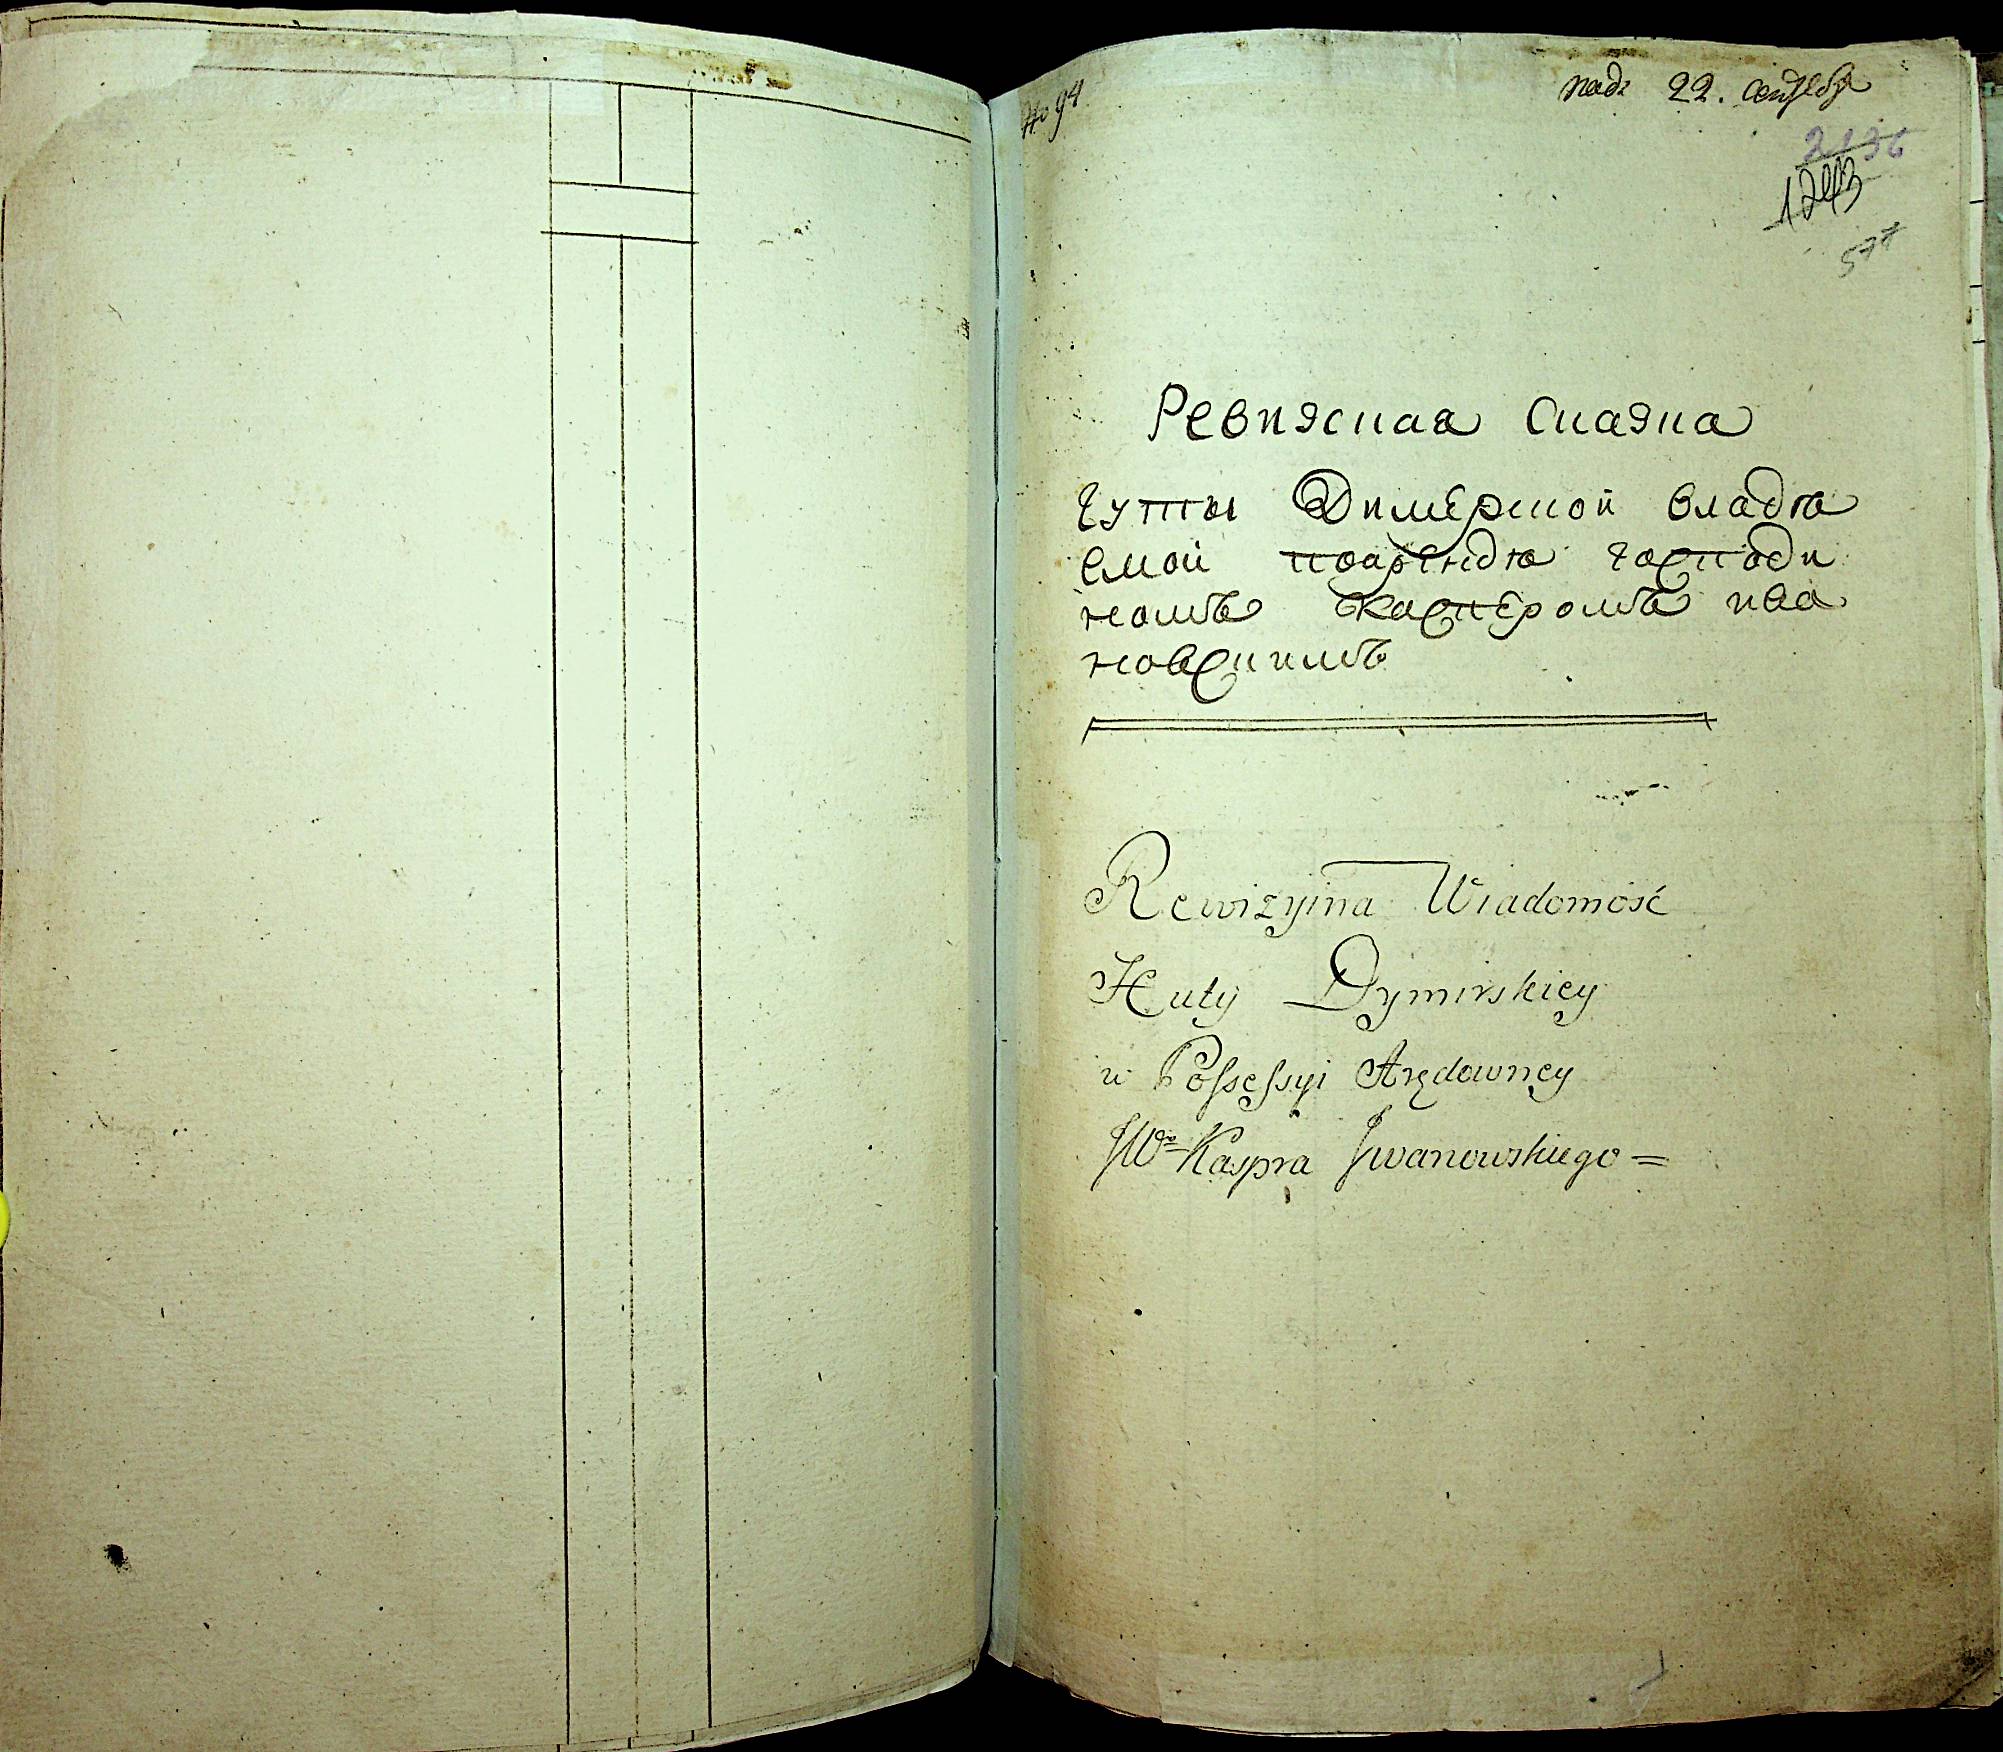 № 94
22. сентебр
2136
1243
577
Ревизская Сказка
гуты Димерской владѣ
емой поарендѣ господи
номъ Каспѣромъ ива
новскимъ
Rewizyina Wiadomość
Huty Dymirskiey
w Possessyi Arędowney
JWº Kaspra Jwanowskiego =